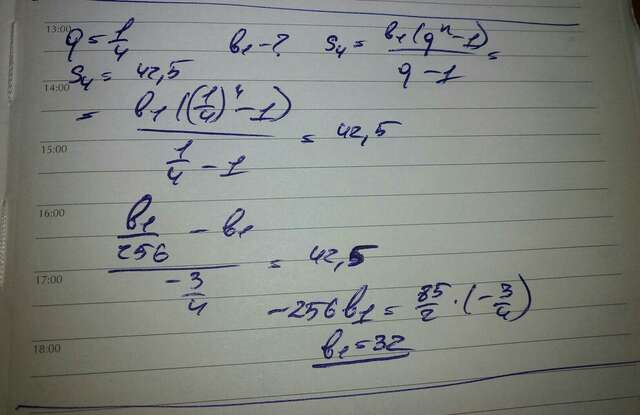 13:00
q = 1/4   b₁ - ?   S₄ = b₁(qⁿ - 1) / (q - 1) =
S₄ = 42,5
14:00
= b₁((1/4)⁴ - 1) / (1/4 - 1) = 42,5
15:00
16:00
(b₁/256 - b₁) / (-3/4) = 42,5
17:00
-256b₁ = 85/2 · (-3/4)
b₁ = 32
18:00